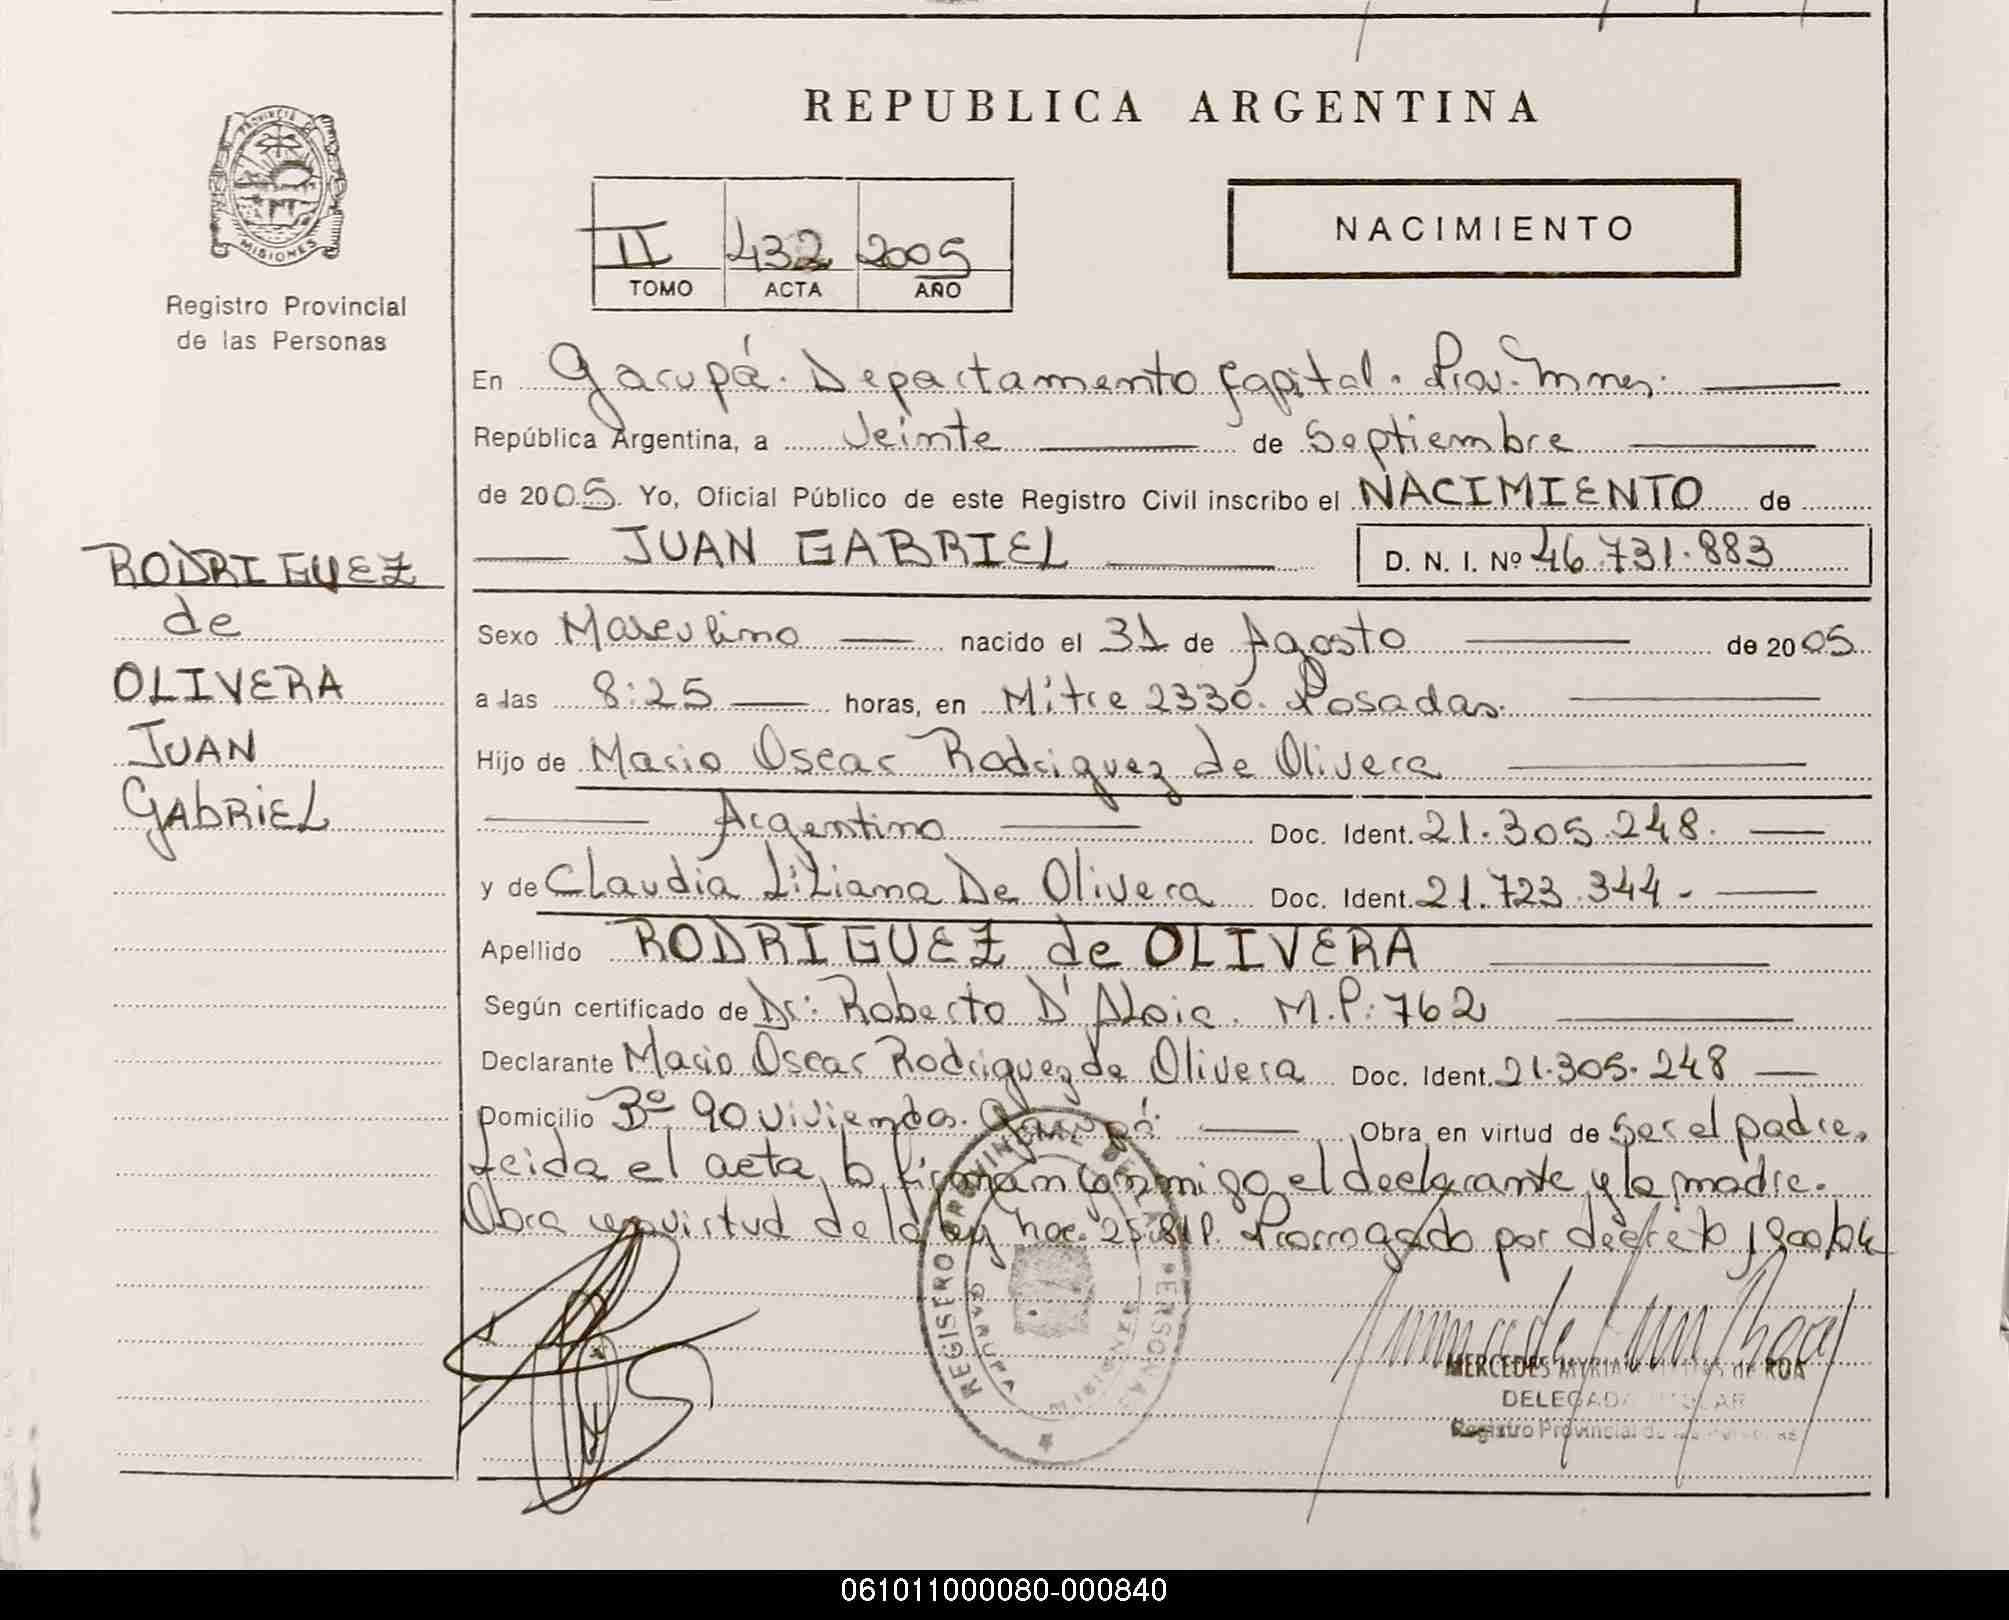 REPUBLICA ARGENTINA
PROVINCIA DE
MISIONES
Registro Provincial
de las Personas
NACIMIENTO
II 432 2005
TOMO ACTA AÑO
En Garupá. Departamento Capital. Prov. Mnes.
República Argentina, a Veinte de Septiembre
de 2005. Yo, Oficial Público de este Registro Civil inscribo el NACIMIENTO de
JUAN GABRIEL D. N. I. Nº 46.731.883
RODRIGUEZ
de
OLIVERA
JUAN
GABRIEL
Sexo Masculino nacido el 31 de Agosto de 2005
a las 8:25 horas, en Mitre 2330. Posadas.
Hijo de Mario Oscar Rodriguez de Olivera
Argentino Doc. Ident. 21.305.248.
y de Claudia Liliana De Olivera Doc. Ident. 21.723.344.
Apellido RODRIGUEZ de OLIVERA
Según certificado de Dr: Roberto D'Aloia. M.P: 762
Declarante Mario Oscar Rodriguez de Olivera Doc. Ident. 21.305.248
Domicilio Bº 90 viviendas. Garupá. Obra en virtud de Ser el padre.
Leida el acta, la firman conmigo el declarante y la madre.
Obra en virtud de la ley nac. 25.819. Prorrogado por decreto
REGISERO PROVINCIAL DE LAS PERSONAS
GARUPA
MISIONES
MERCEDES DE ROA
DELEGADA TITULAR
Registro Provincial de las Personas
061011000080-000840